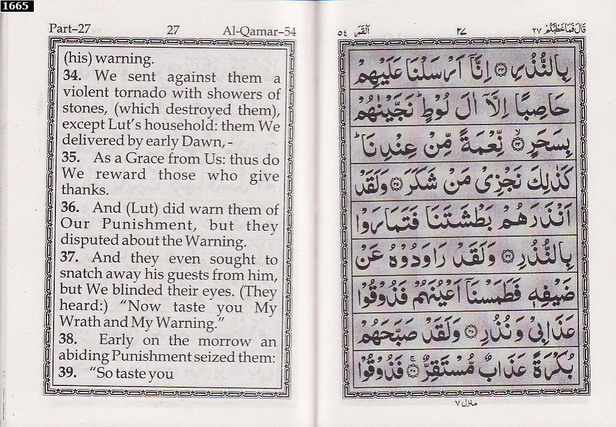 1665
Part–27 27 Al-Qamar–54
(his) warning.
34. We sent against them a
violent tornado with showers of
stones, (which destroyed them),
except Lut's household: them We
delivered by early Dawn,-
35. As a Grace from Us: thus do
We reward those who give
thanks.
36. And (Lut) did warn them of
Our Punishment, but they
disputed about the Warning.
37. And they even sought to
snatch away his guests from him,
but We blinded their eyes. (They
heard:) “Now taste you My
Wrath and My Warning.”
38. Early on the morrow an
abiding Punishment seized them:
39. “So taste you
قَالَ فَمَا خَطْبُكُمْ ٢٧ ٢٧ اَلْقَمَر ٥٤
بِالنُّذُرِ ﴿٣٣﴾ اِنَّاۤ اَرْسَلْنَا عَلَيْهِمْ
حَاصِبًا اِلَّاۤ اٰلَ لُوْطٍ ؕ نَجَّيْنٰهُمْ
بِسَحَرٍ ﴿٣٤﴾ نِّعْمَةً مِّنْ عِنْدِنَا ؕ
كَذٰلِكَ نَجْزِىْ مَنْ شَكَرَ ﴿٣٥﴾ وَلَقَدْ
اَنْذَرَهُمْ بَطْشَتَنَا فَتَمَارَوْا
بِالنُّذُرِ ﴿٣٦﴾ وَلَقَدْ رَاوَدُوْهُ عَنْ
ضَيْفِهٖ فَطَمَسْنَاۤ اَعْيُنَهُمْ فَذُوْقُوْا
عَذَابِىْ وَنُذُرِ ﴿٣٧﴾ وَلَقَدْ صَبَّحَهُمْ
بُكْرَةً عَذَابٌ مُّسْتَقِرٌّ ﴿٣٨﴾ فَذُوْقُوْا
منزل ٧